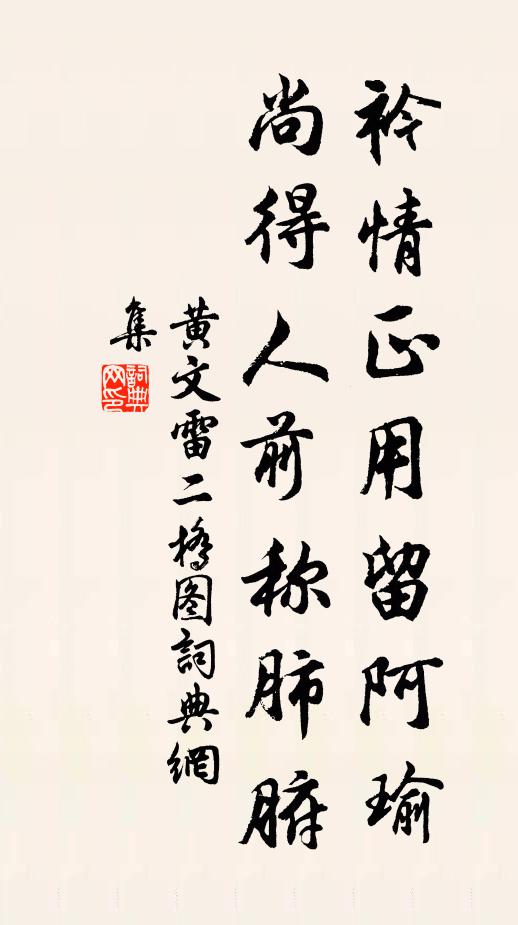 衿情正用留阿瑜
尚得人前称肺腑
黄文雷二橋图詞典網
集
詞典网印